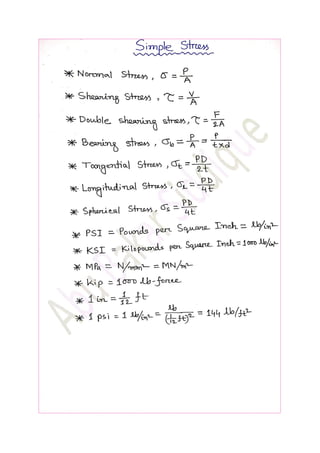 Simple Stress
* Normal Stress, σ = P/A
* Shearing Stress, τ = V/A
* Double shearing stress, τ = F/2A
* Bearing stress, σb = P/A = P/(t×d)
* Tangential Stress, σt = PD/2t
* Longitudinal Stress, σL = PD/4t
* Spherical Stress, σs = PD/4t
* PSI = Pounds per Square Inch = lb/in²
* KSI = Kilopounds per Square Inch = 1000 lb/in²
* MPa = N/mm² = MN/m²
* kip = 1000 lb-force
* 1 in = 1/12 ft
* 1 psi = 1 lb/in² = lb/(1/12 ft)² = 144 lb/ft²